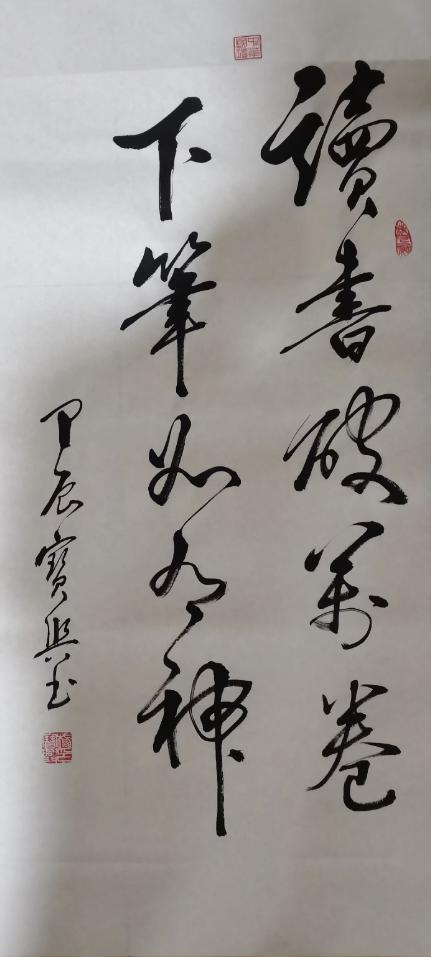 讀書破萬卷
下筆如有神
甲辰寶興书